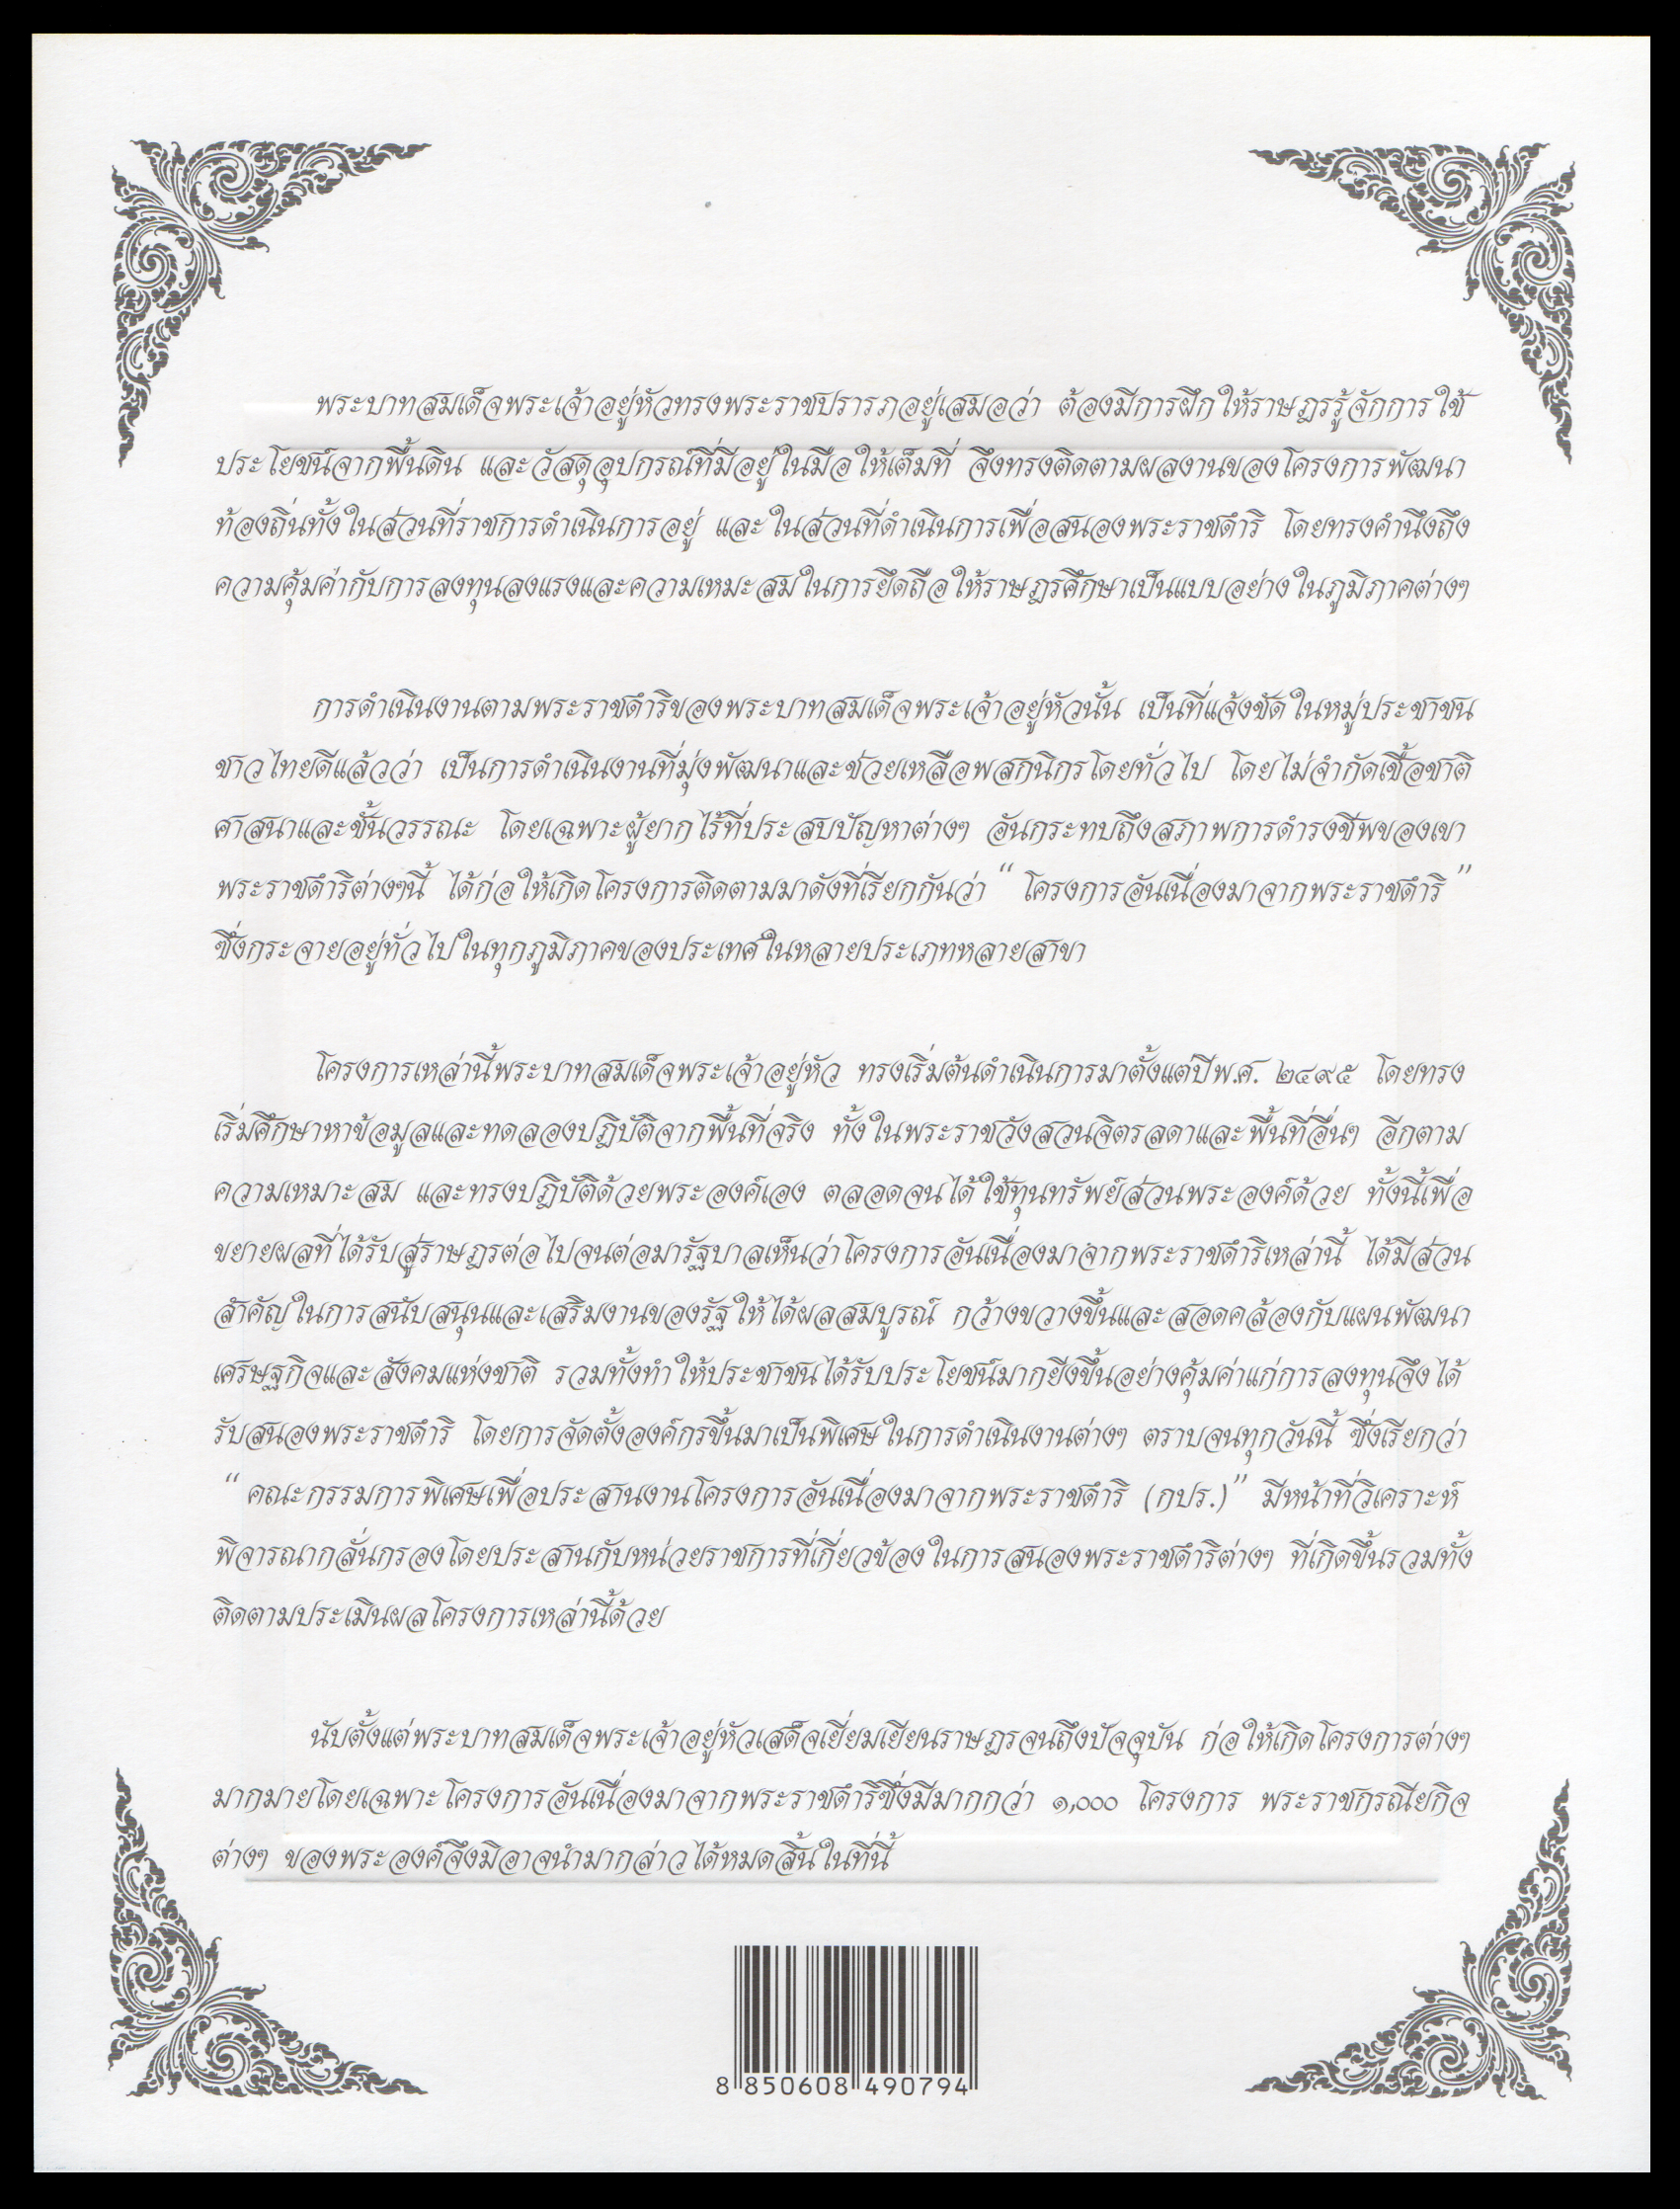 พระบาทสมเด็จพระเจ้าอยู่หัวทรงพระราชปรารภอยู่เสมอว่า ต้องมีการฝึกให้ราษฎรรู้จักการใช้
ประโยชน์จากพื้นดิน และวัสดุอุปกรณ์ที่มีอยู่ในมือให้เต็มที่ จึงทรงติดตามผลงานของโครงการพัฒนา
ท้องถิ่นทั้งในส่วนที่ราชการดำเนินการอยู่ และในส่วนที่ดำเนินการเพื่อสนองพระราชดำริ โดยทรงคำนึงถึง
ความคุ้มค่ากับการลงทุนลงแรงและความเหมะสมในการยึดถือให้ราษฎรศึกษาเป็นแบบอย่างในภูมิภาคต่างๆ
การดำเนินงานตามพระราชดำริของพระบาทสมเด็จพระเจ้าอยู่หัวนั้น เป็นที่แจ้งชัดในหมู่ประชาชน
ชาวไทยดีแล้วว่า เป็นการดำเนินงานที่มุ่งพัฒนาและช่วยเหลือพสกนิกรโดยทั่วไป โดยไม่จำกัดเชื้อชาติ
ศาสนาและชั้นวรรณะ โดยเฉพาะผู้ยากไร้ที่ประสบปัญหาต่างๆ อันกระทบถึงสภาพการดำรงชีพของเขา
พระราชดำริต่างๆนี้ ได้ก่อให้เกิดโครงการติดตามมาดังที่เรียกกันว่า “ โครงการอันเนื่องมาจากพระราชดำริ ”
ซึ่งกระจายอยู่ทั่วไปในทุกภูมิภาคของประเทศในหลายประเภทหลายสาขา
โครงการเหล่านี้พระบาทสมเด็จพระเจ้าอยู่หัว ทรงเริ่มต้นดำเนินการมาตั้งแต่ปีพ.ศ. ๒๔๙๕ โดยทรง
เริ่มศึกษาหาข้อมูลและทดลองปฏิบัติจากพื้นที่จริง ทั้งในพระราชวังสวนจิตรลดาและพื้นที่อื่นๆ อีกตาม
ความเหมาะสม และทรงปฏิบัติด้วยพระองค์เอง ตลอดจนได้ใช้ทุนทรัพย์ส่วนพระองค์ด้วย ทั้งนี้เพื่อ
ขยายผลที่ได้รับสู่ราษฎรต่อไปจนต่อมารัฐบาลเห็นว่าโครงการอันเนื่องมาจากพระราชดำริเหล่านี้ ได้มีส่วน
สำคัญในการสนับสนุนและเสริมงานของรัฐให้ได้ผลสมบูรณ์ กว้างขวางขึ้นและสอดคล้องกับแผนพัฒนา
เศรษฐกิจและสังคมแห่งชาติ รวมทั้งทำให้ประชาชนได้รับประโยชน์มากยิ่งขึ้นอย่างคุ้มค่าแก่การลงทุนจึงได้
รับสนองพระราชดำริ โดยการจัดตั้งองค์กรขึ้นมาเป็นพิเศษในการดำเนินงานต่างๆ ตราบจนทุกวันนี้ ซึ่งเรียกว่า
“ คณะกรรมการพิเศษเพื่อประสานงานโครงการอันเนื่องมาจากพระราชดำริ (กปร.)” มีหน้าที่วิเคราะห์
พิจารณากลั่นกรองโดยประสานกับหน่วยราชการที่เกี่ยวข้องในการสนองพระราชดำริต่างๆ ที่เกิดขึ้นรวมทั้ง
ติดตามประเมินผลโครงการเหล่านี้ด้วย
นับตั้งแต่พระบาทสมเด็จพระเจ้าอยู่หัวเสด็จเยี่ยมเยียนราษฎรจนถึงปัจจุบัน ก่อให้เกิดโครงการต่างๆ
มากมายโดยเฉพาะโครงการอันเนื่องมาจากพระราชดำริซึ่งมีมากกว่า ๑,๐๐๐ โครงการ พระราชกรณียกิจ
ต่างๆ ของพระองค์จึงมิอาจนำมากล่าวได้หมดสิ้นในที่นี้
8 850608 490794